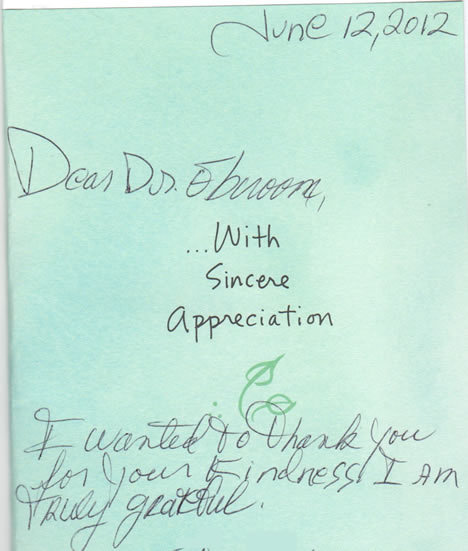 June 12, 2012
Dear Dr.
...With
Sincere
Appreciation
I wanted to thank you
for your kindness. I am
truly grateful.